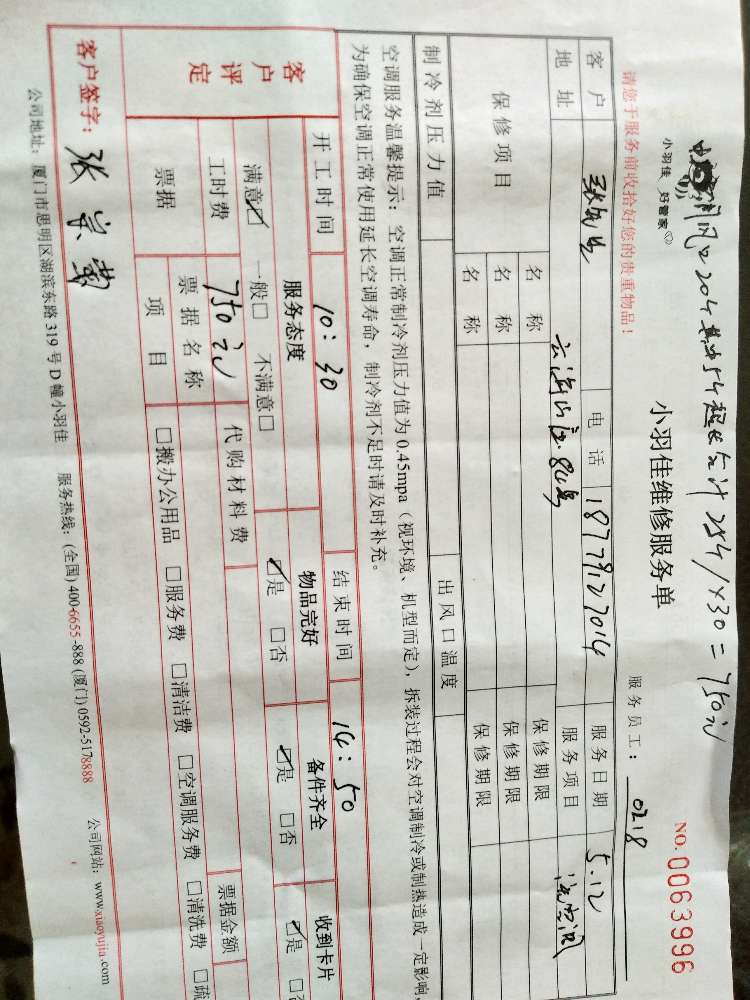 出风口20个 其中5个超长 合计25个/×30=750元
小羽佳 好管家
小羽佳维修服务单
NO.0063996
请您于服务前收拾好您的贵重物品！
服务员工： 0218
客户 电话 18778127014 服务日期 5.12
地址 服务项目
保修项目 名称 保修期限
名称 保修期限
名称 保修期限
制冷剂压力值 出风口温度
空调服务温馨提示：空调正常制冷剂压力值为0.45mpa（视环境、机型而定），拆装过程会对空调制冷或制热造成一定影响，
为确保空调正常使用延长空调寿命，制冷剂不足时请及时补充。
开工时间 10：30 结束时间 14：50
客户评定 服务态度 物品完好 备件齐全 收到卡片
满意☑ 一般□ 不满意□ ☑是 □否 ☑是 □否 ☑是
工时费 750元 代购材料费
票据 票据名称 票据金额
项目 □搬办公用品 □服务费 □清洁费 □空调服务费 □清洗费
客户签字：
公司地址：厦门市思明区湖滨东路319号D幢小羽佳 服务热线：(全国)400-6655-888 (厦门)0592-5178888 公司网站：www.xiaoyujia.com